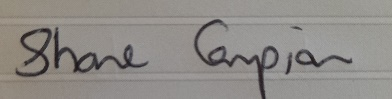 Shane Campian